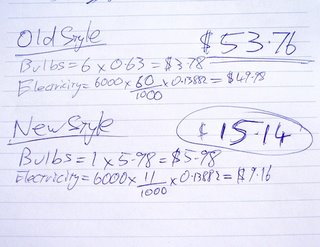 Old Style $53.76
Bulbs = 6 x 0.63 = $3.78
Electricity = 6000 x 60/1000 x 0.13882 = $49.98
New Style $15.14
Bulbs = 1 x 5.98 = $5.98
Electricity = 6000 x 11/1000 x 0.13882 = $9.16